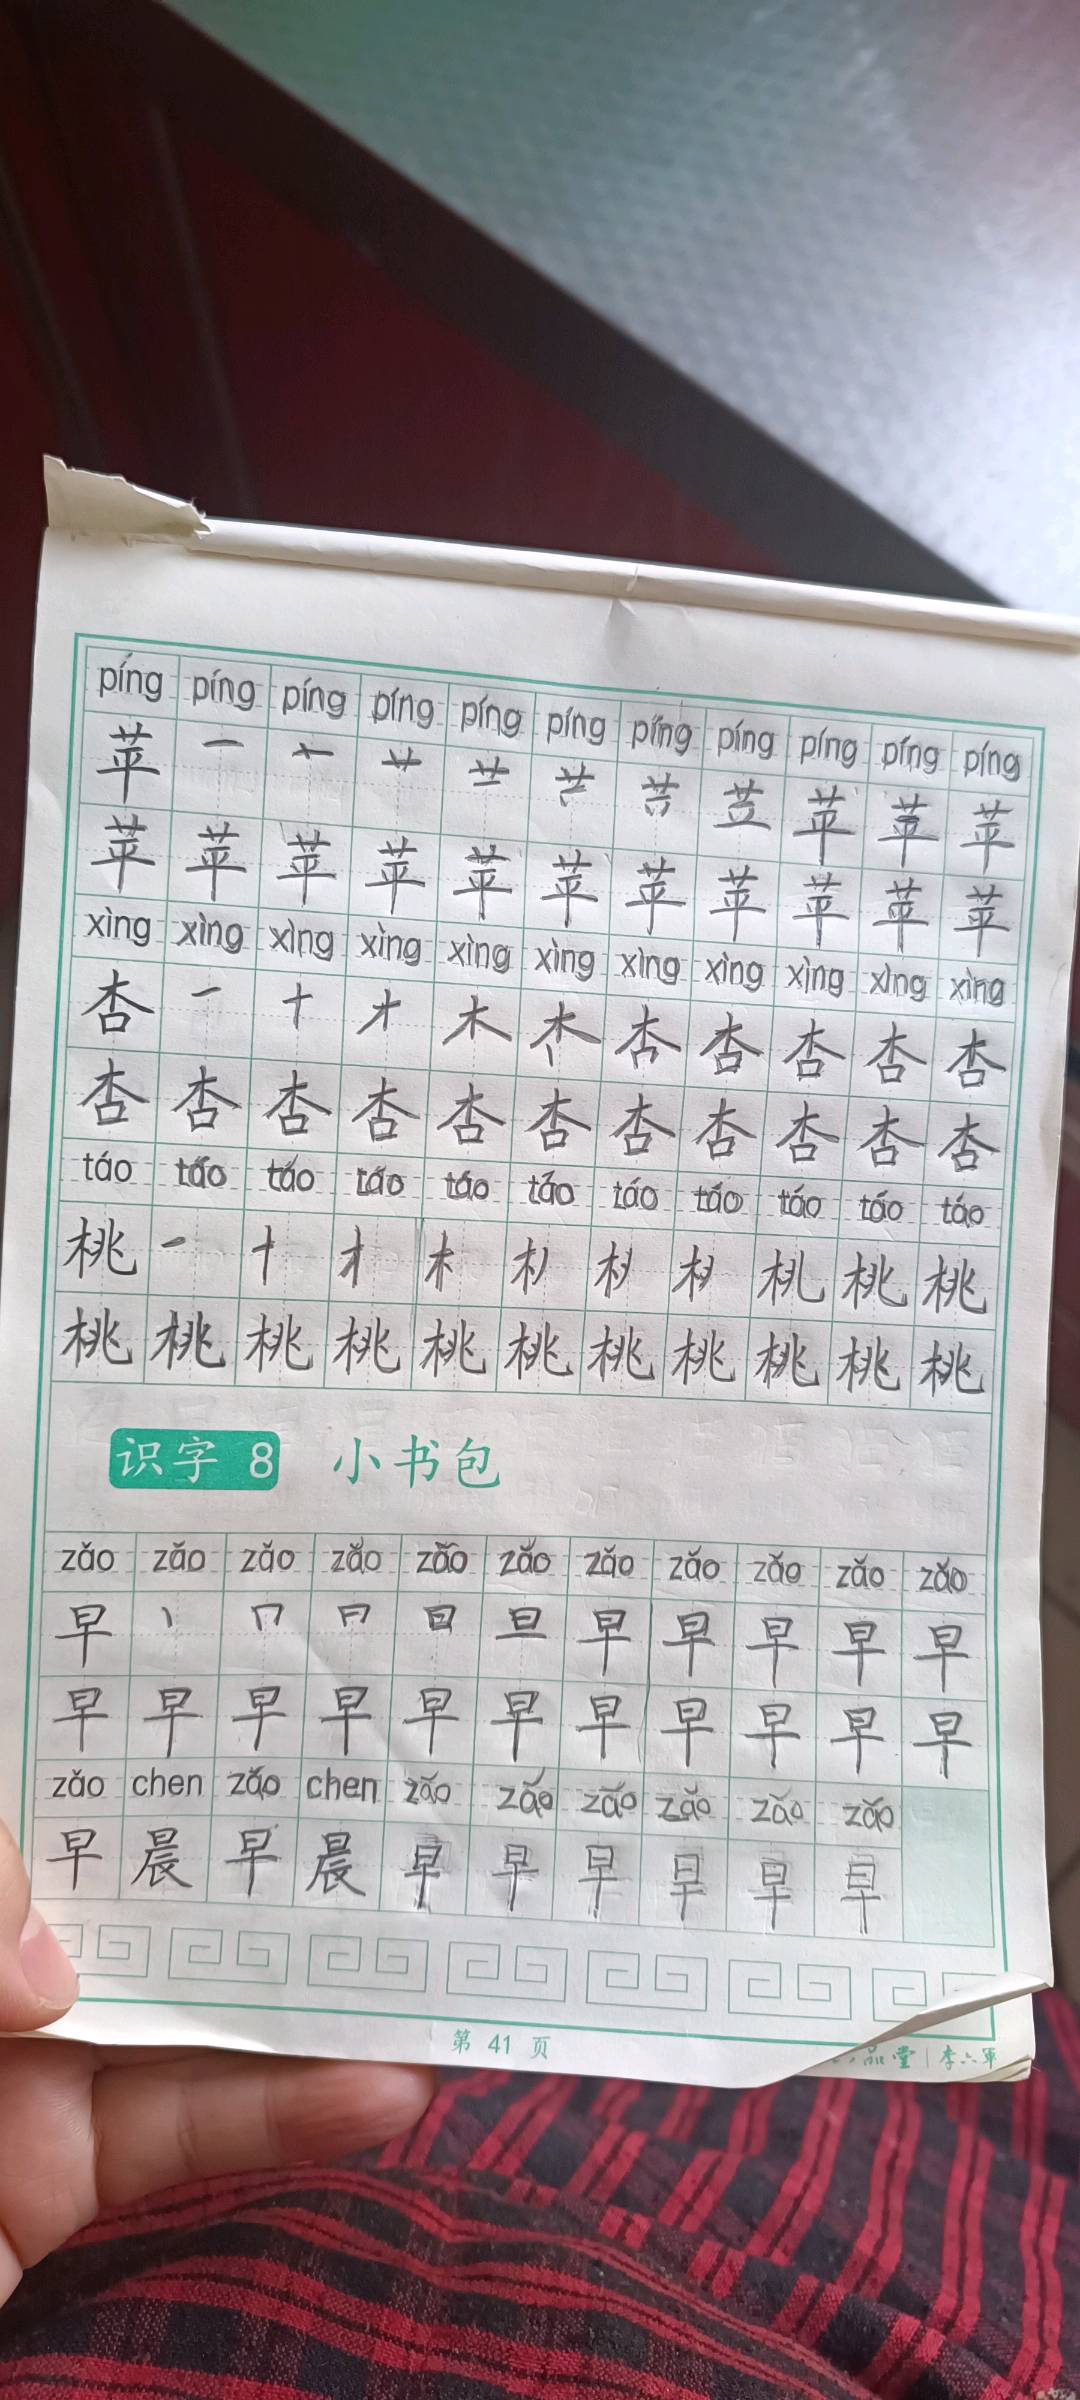 píng píng píng píng píng píng píng píng píng píng píng
苹 一 十 艹 苹 苹 苹
苹 苹 苹 苹 苹 苹 苹 苹 苹 苹 苹
xìng xìng xìng xìng xìng xìng xìng xìng xìng xìng xìng
杏 一 十 才 木 杏 杏 杏 杏 杏
杏 杏 杏 杏 杏 杏 杏 杏 杏 杏 杏
táo táo táo táo táo táo táo táo táo táo táo
桃 一 十 才 木 桃 桃
桃 桃 桃 桃 桃 桃 桃 桃 桃 桃 桃
识字 8 小书包
zǎo zǎo zǎo zǎo zǎo zǎo zǎo zǎo zǎo zǎo zǎo
早 丨 冂 日 旦 早 早 早 早 早
早 早 早 早 早 早 早 早 早 早 早
zǎo chen zǎo chen zǎo zǎo zǎo zǎo zǎo zǎo
早 晨 早 晨 早 早 早 早 早 早
第 41 页
品堂 | 李六军